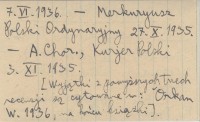 7. VI. 1936. — Merkuryusz
Polski Ordynaryjny 27. X. 1935.
— A. Chor., Kurjer Polski
3. XI. 1935.
[Wyjątki z powyższych trzech
recenzji są cytowane w: Orkan
W. 1936, na końcu książki].